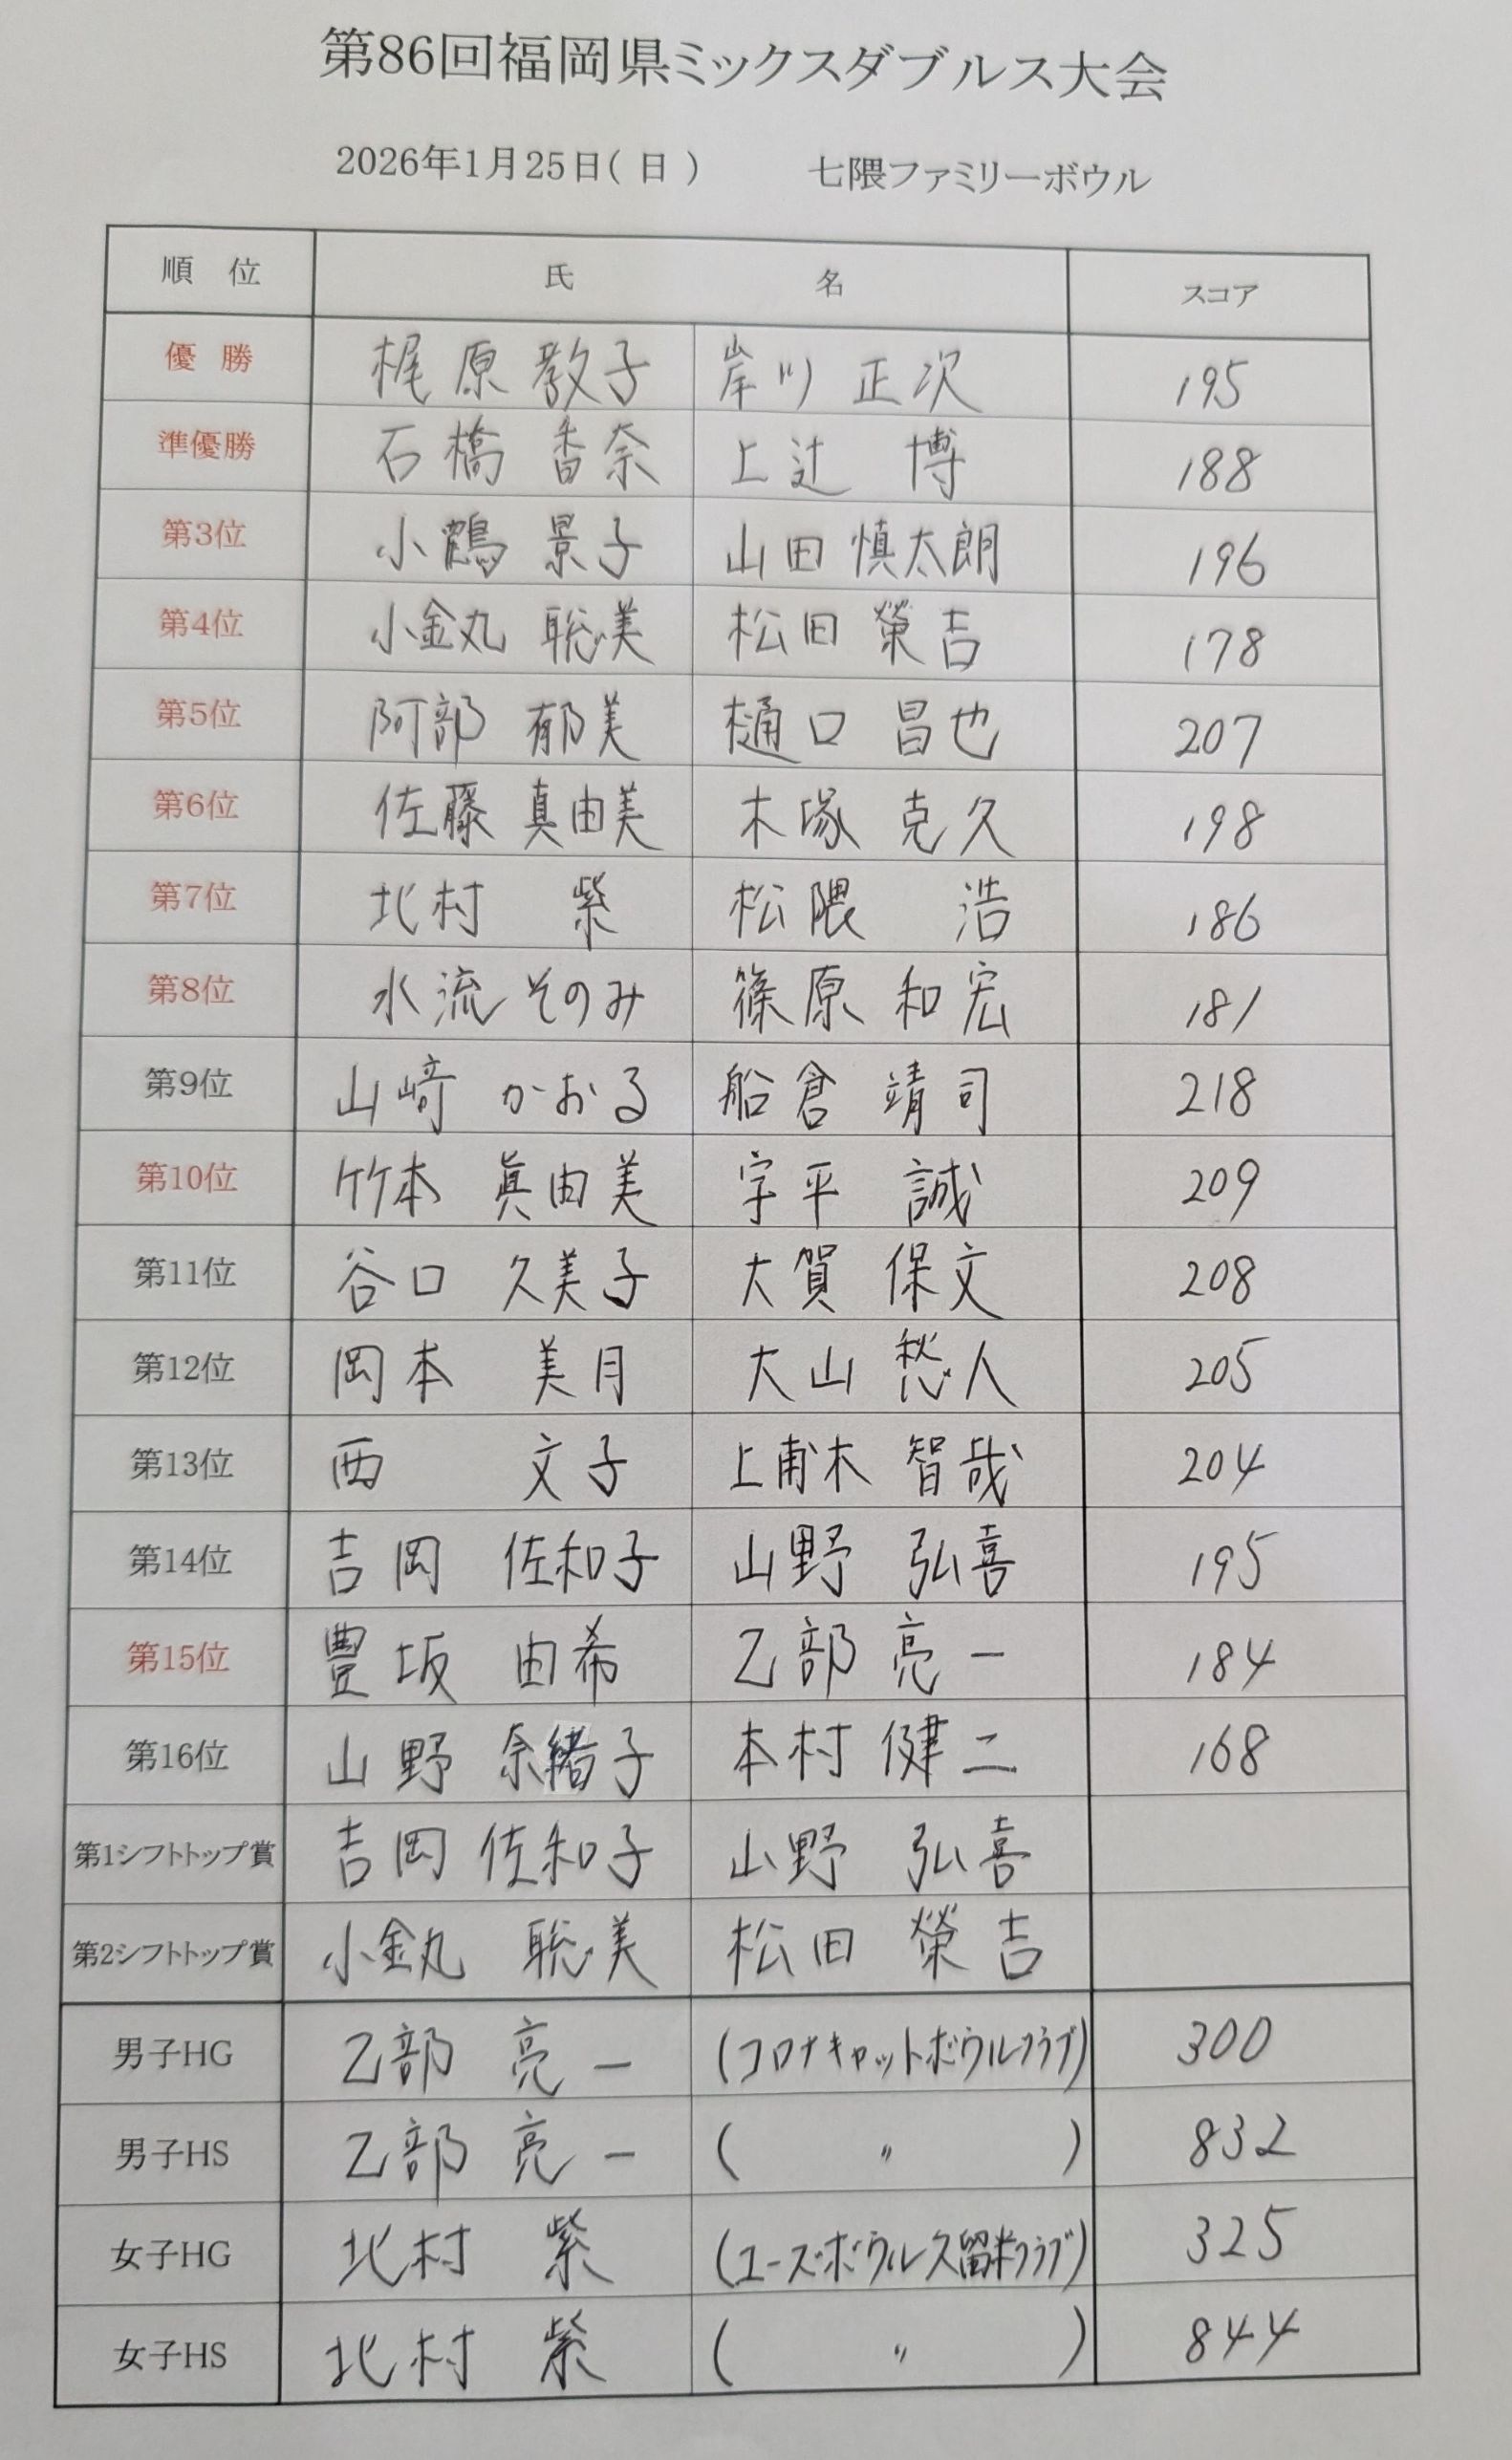 第86回福岡県ミックスダブルス大会
2026年1月25日(日) 七隈ファミリーボウル
順位 氏名 スコア
優勝 梶原教子 岸川正次 195
準優勝 石橋香奈 上辻博 188
第3位 小鶴景子 山田慎太朗 196
第4位 小金丸聡美 松田榮吉 178
第5位 阿部郁美 樋口昌也 207
第6位 佐藤真由美 木塚克久 198
第7位 北村紫 松隈浩 186
第8位 水流そのみ 篠原和宏 181
第9位 山﨑かおる 船倉靖司 218
第10位 竹本眞由美 宇平誠 209
第11位 谷口久美子 大賀保文 208
第12位 岡本美月 大山愁人 205
第13位 西文子 上甫木智哉 204
第14位 吉岡佐和子 山野弘喜 195
第15位 豊坂由希 乙部亮一 184
第16位 山野奈緒子 本村健二 168
第1シフトトップ賞 吉岡佐和子 山野弘喜
第2シフトトップ賞 小金丸聡美 松田榮吉
男子HG 乙部亮一 (コロナキャットボウルクラブ) 300
男子HS 乙部亮一 ( 〃 ) 832
女子HG 北村紫 (ユーズボウル久留米クラブ) 325
女子HS 北村紫 ( 〃 ) 844